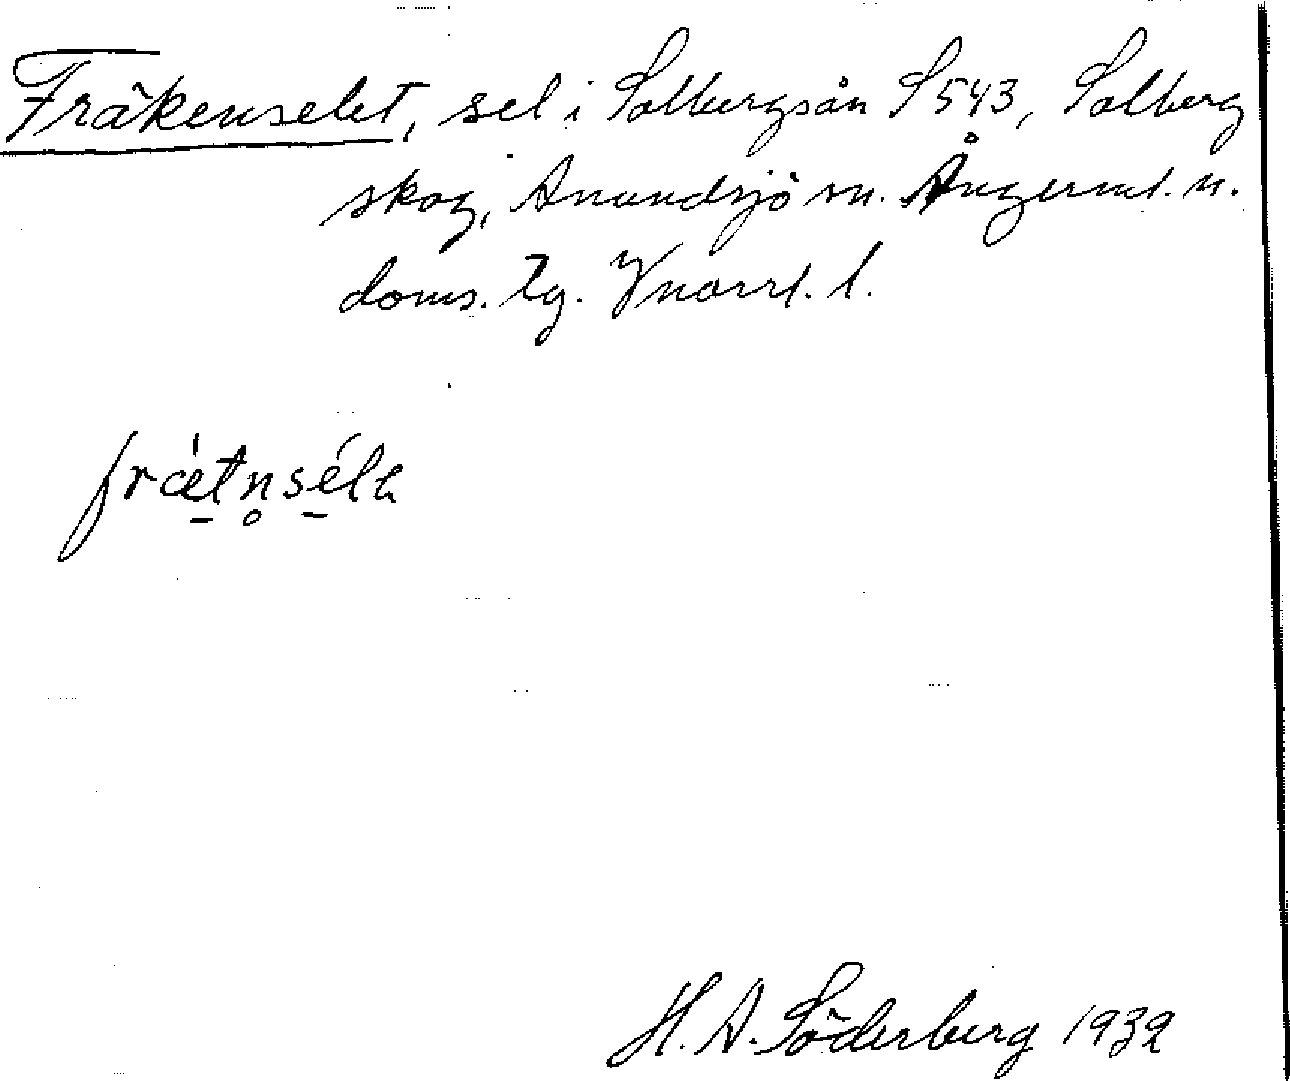 Fräkenselet, sel i Solbergsån S 543, Solberg
skog, Anundsjö sn. Ångerml. n.
doms. tg. Vnorrl. l.
frǽtn̥sélα
H. A. Söderberg 1932